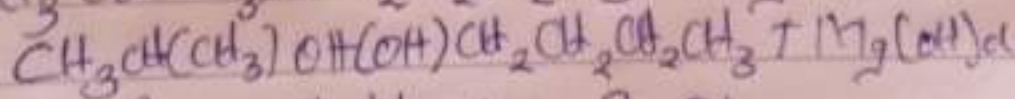 CH₃CH(CH₃)CH(OH)CH₂CH₂CH₂CH₃ + Mg(OH)Cl